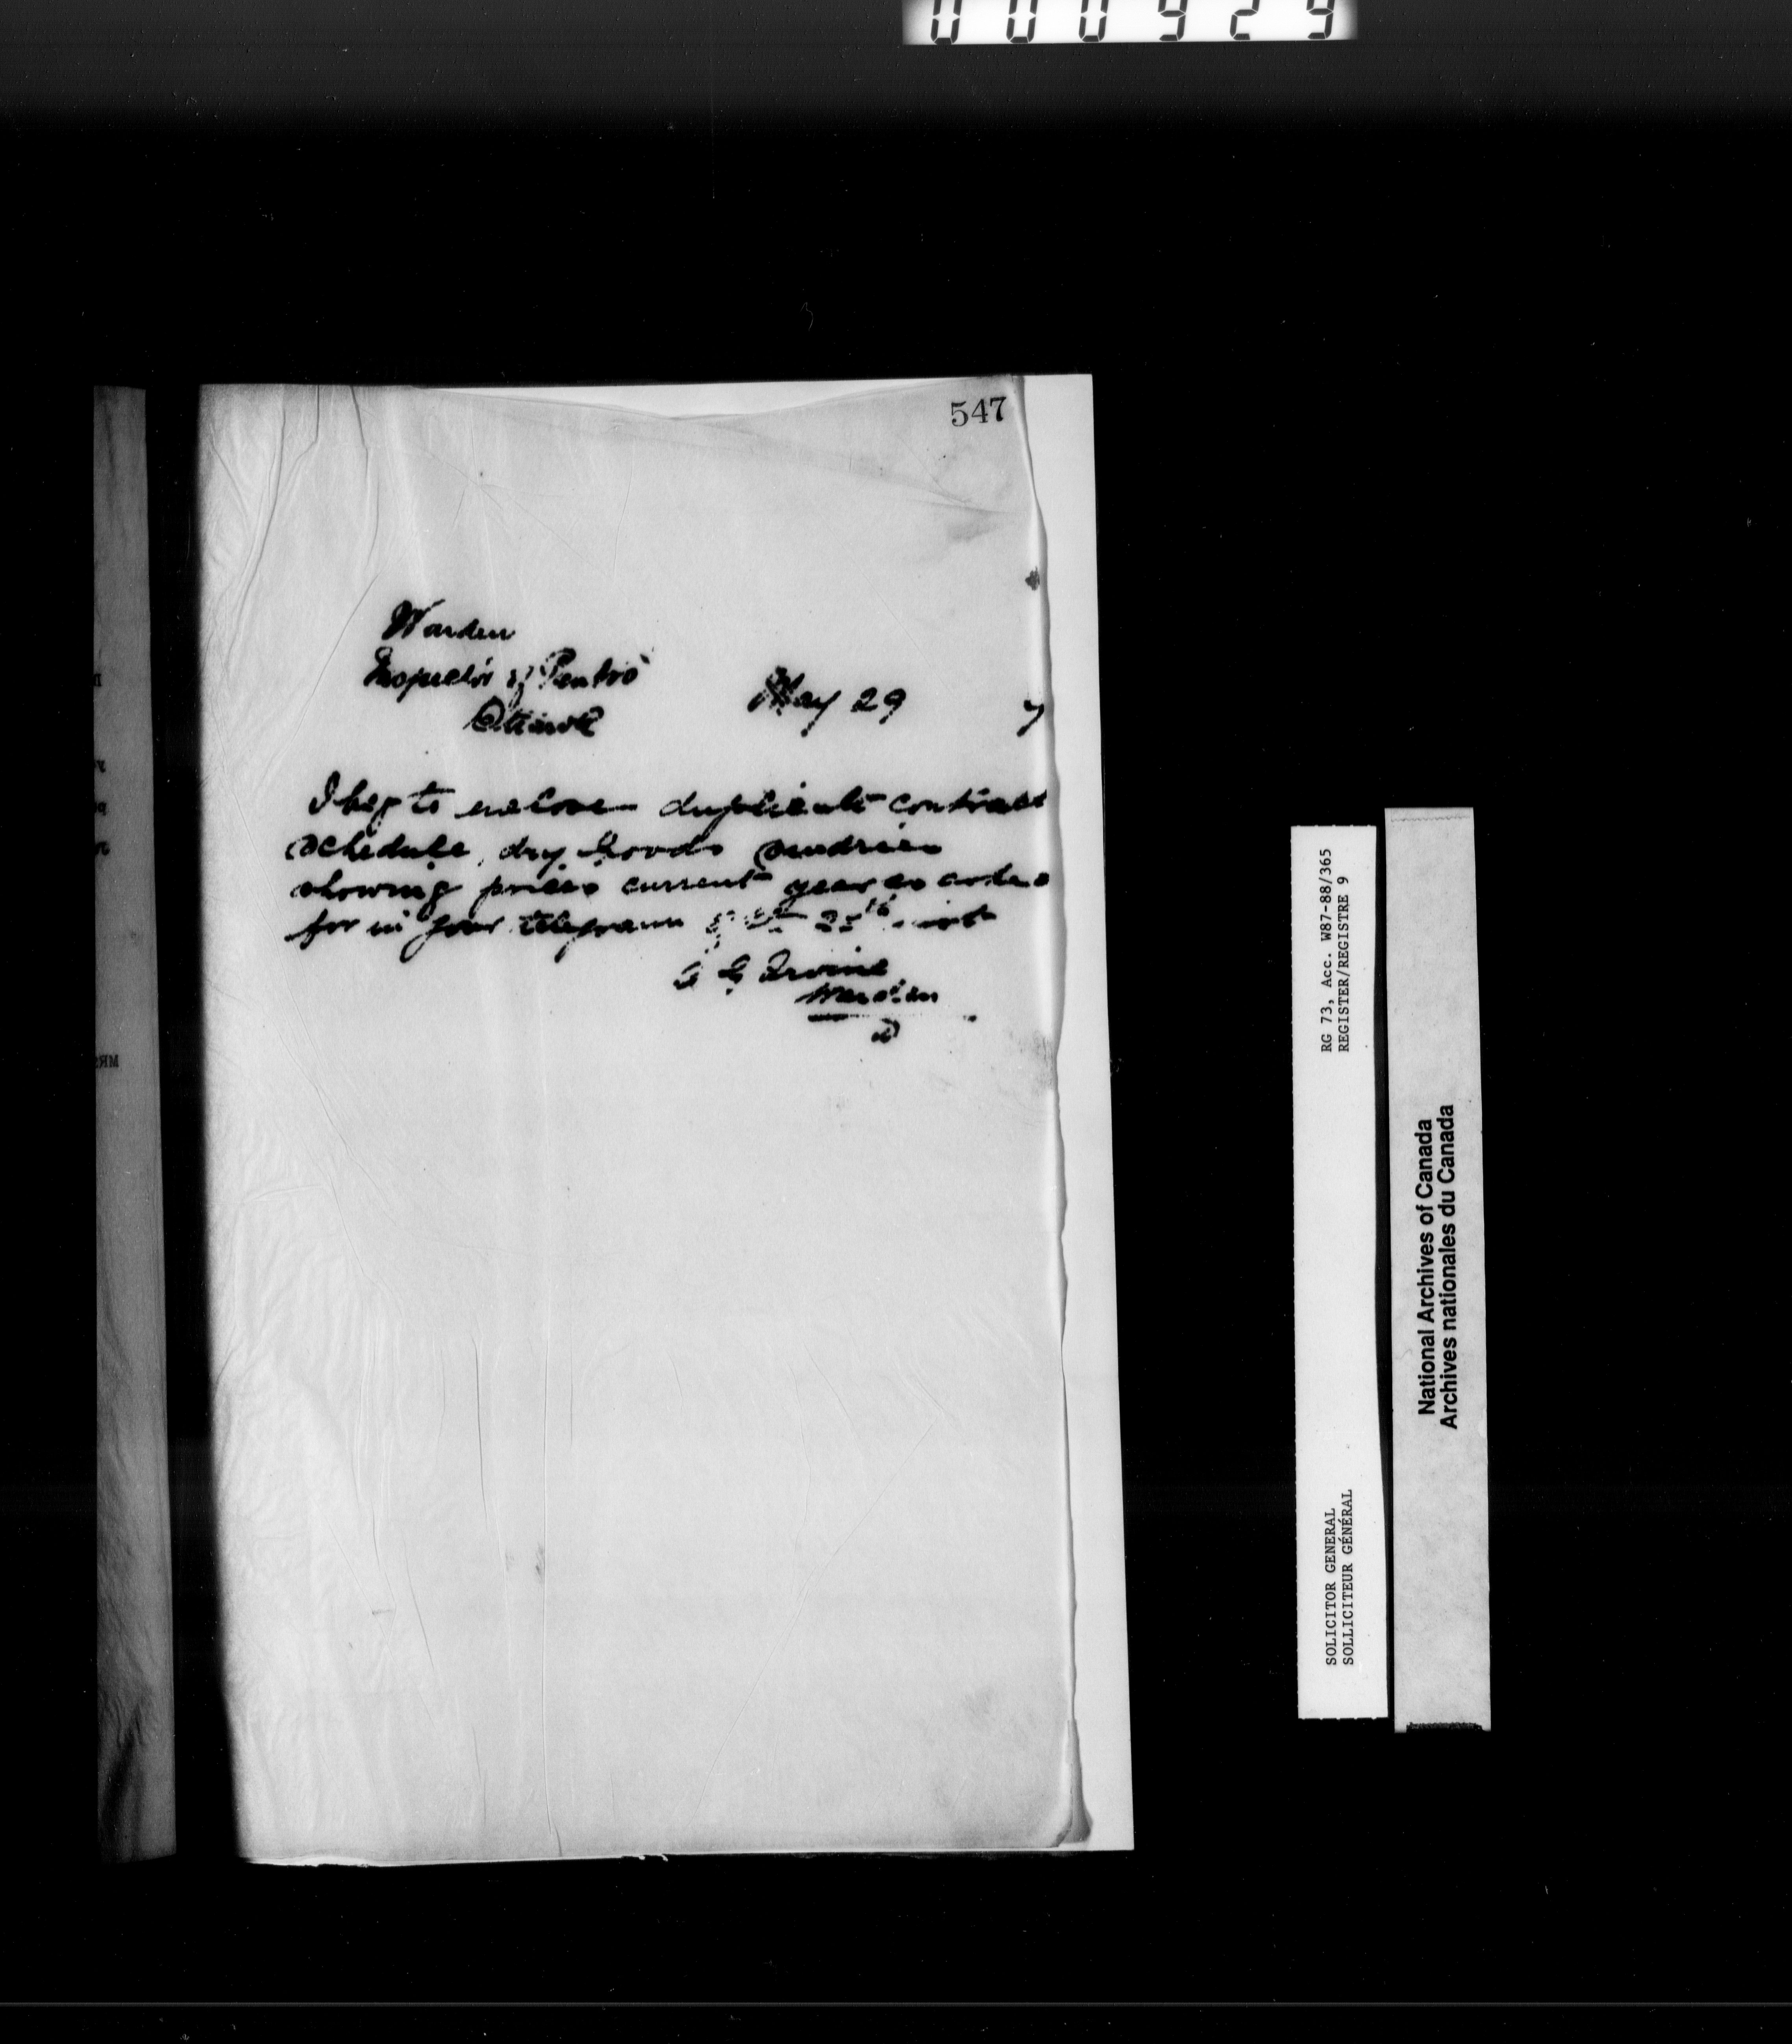 000929
547
Warden
Inspector of Pentrs
Ottawa
May 29 7
I beg to enclose duplicate contract
schedule, dry goods sundries
showing prices current year as asked
for in your telegram of the 25th inst
A G Irvine
Warden
RG 73, Acc. W87-88/365
REGISTER/REGISTRE 9
SOLICITOR GENERAL
SOLLICITEUR GÉNÉRAL
National Archives of Canada
Archives nationales du Canada